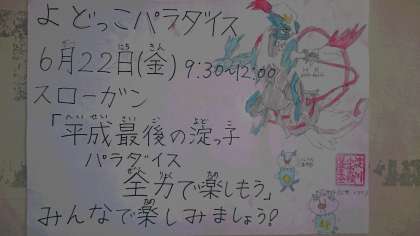 よどっこパラダイス
6月22日(金) 9:30~12:00
スローガン
「平成最後の淀っ子
パラダイス
全力で楽しもう」
みんなで楽しみましょう!